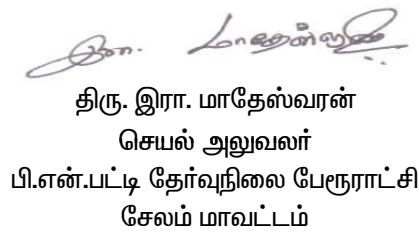 இரா. மாதேஸ்வரன்
திரு. இரா. மாதேஸ்வரன்
செயல் அலுவலர்
பி.என்.பட்டி தேர்வுநிலை பேரூராட்சி
சேலம் மாவட்டம்